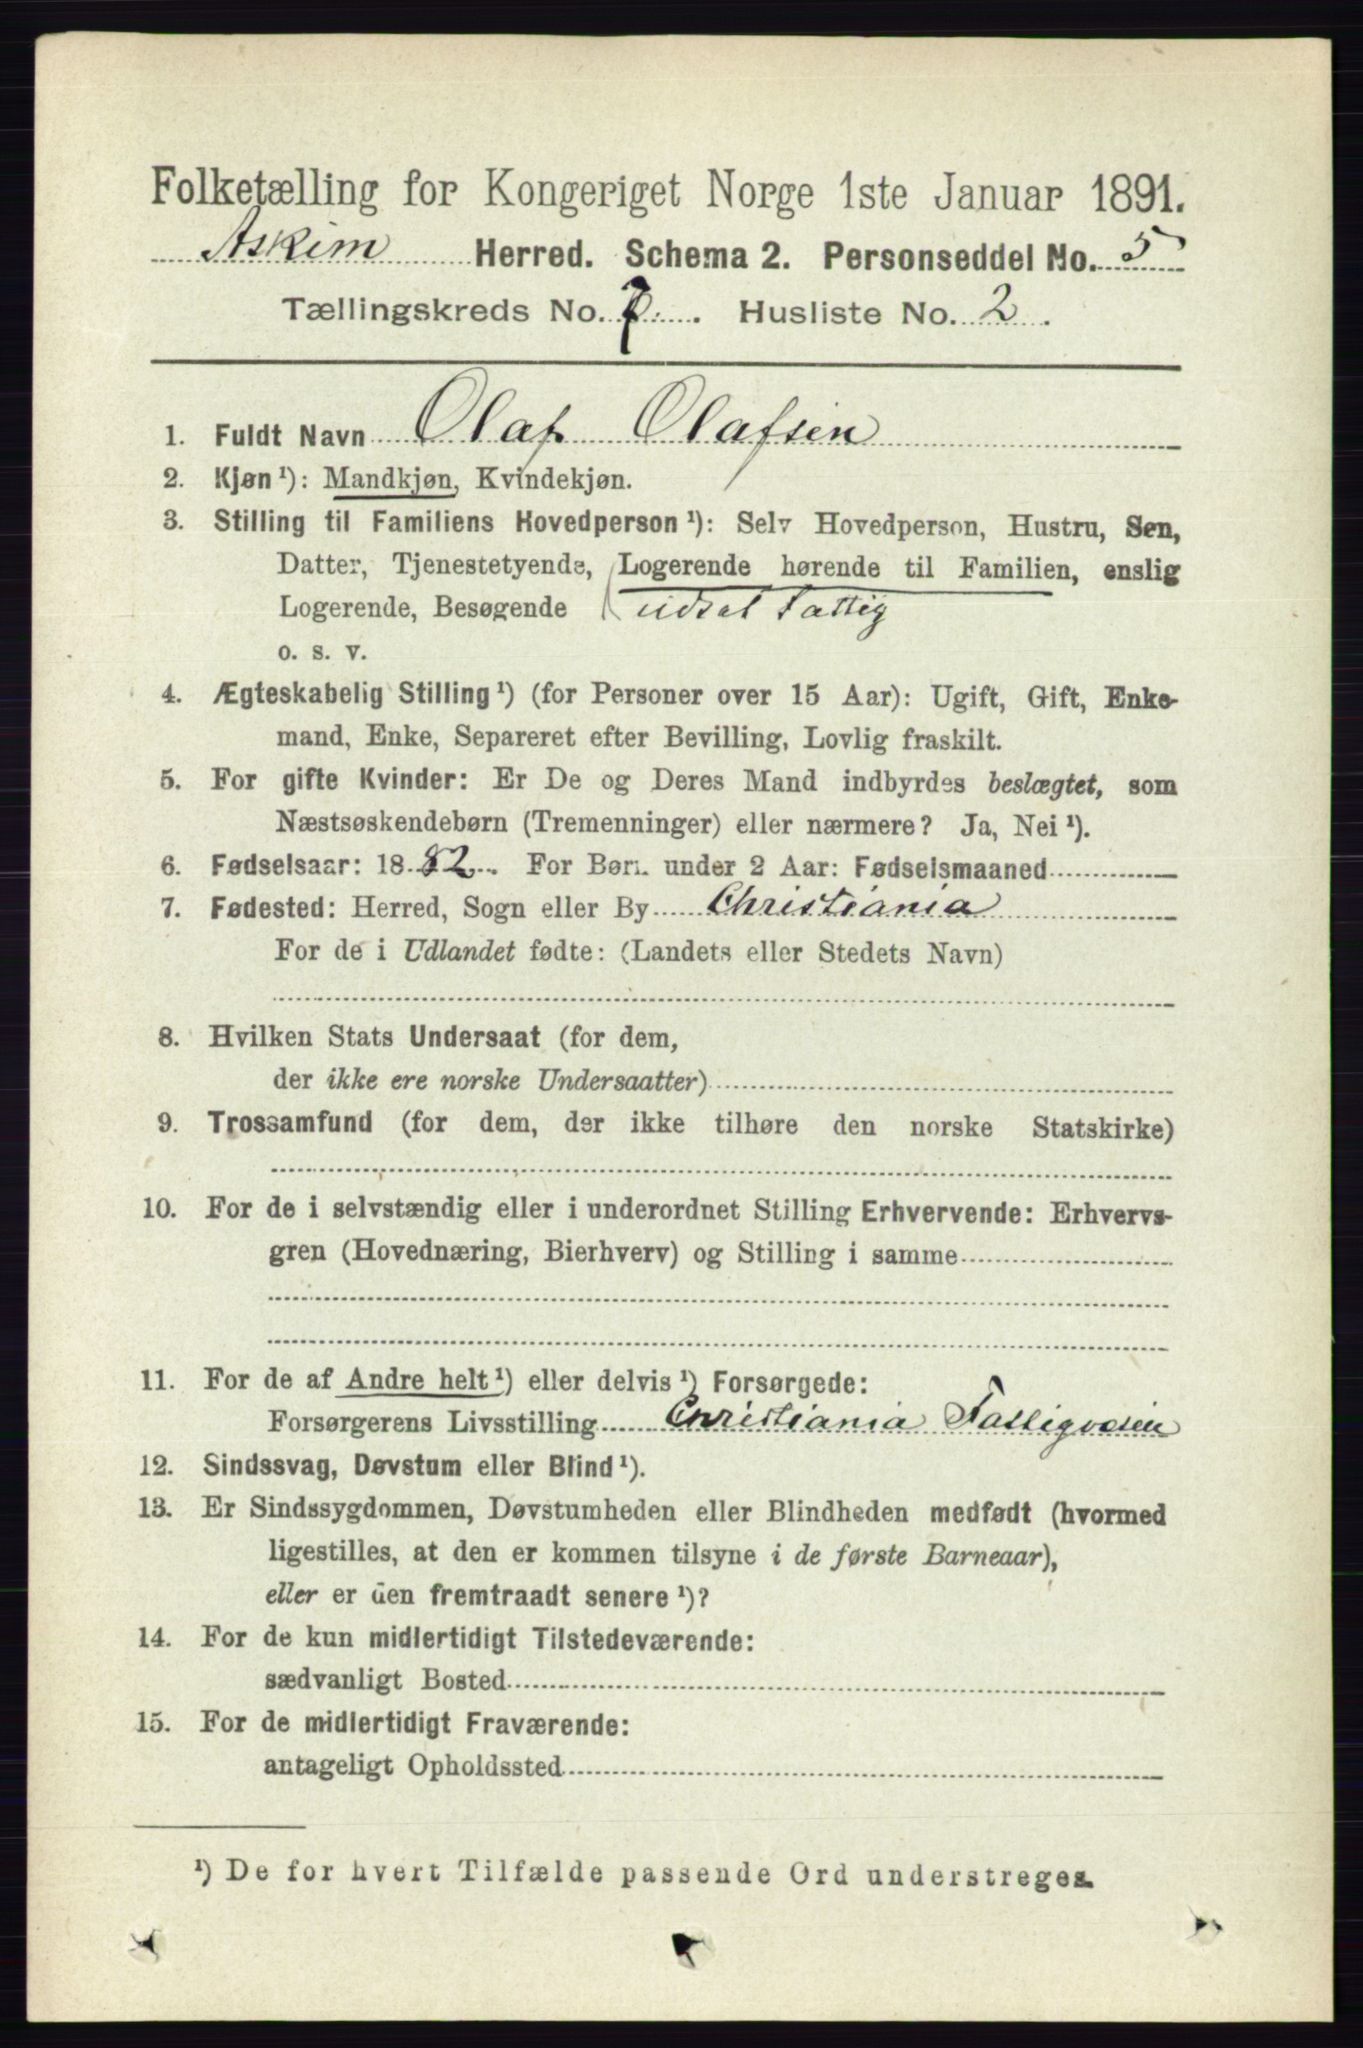 Folketælling for Kongeriget Norge 1ste Januar 1891.
Askim Herred. Schema 2. Personseddel No. 5
Tællingskreds No. 7. Husliste No. 2.
1. Fuldt Navn Olaf Olafsen
2. Kjøn¹): Mandkjøn, Kvindekjøn.
3. Stilling til Familiens Hovedperson¹): Selv Hovedperson, Hustru, Søn,
Datter, Tjenestetyende, Logerende hørende til Familien, enslig
Logerende, Besøgende udsat Fattig
o. s. v.
4. Ægteskabelig Stilling¹) (for Personer over 15 Aar): Ugift, Gift, Enke-
mand, Enke, Separeret efter Bevilling, Lovlig fraskilt.
5. For gifte Kvinder: Er De og Deres Mand indbyrdes beslægtet, som
Næstsøskendebørn (Tremenninger) eller nærmere? Ja, Nei¹).
6. Fødselsaar: 1882. For Børn under 2 Aar: Fødselsmaaned
7. Fødested: Herred, Sogn eller By Christiania
For de i Udlandet fødte: (Landets eller Stedets Navn)
8. Hvilken Stats Undersaat (for dem,
der ikke ere norske Undersaatter)
9. Trossamfund (for dem, der ikke tilhøre den norske Statskirke)
10. For de i selvstændig eller i underordnet Stilling Erhvervende: Erhvervs-
gren (Hovednæring, Bierhverv) og Stilling i samme
11. For de af Andre helt¹) eller delvis¹) Forsørgede:
Forsørgerens Livsstilling Christiania Fattigvæsen
12. Sindssvag, Døvstum eller Blind¹).
13. Er Sindssygdommen, Døvstumheden eller Blindheden medfødt (hvormed
ligestilles, at den er kommen tilsyne i de første Barneaar),
eller er den fremtraadt senere¹)?
14. For de kun midlertidigt Tilstedeværende:
sædvanligt Bosted
15. For de midlertidigt Fraværende:
antageligt Opholdssted
¹) De for hvert Tilfælde passende Ord understreges.